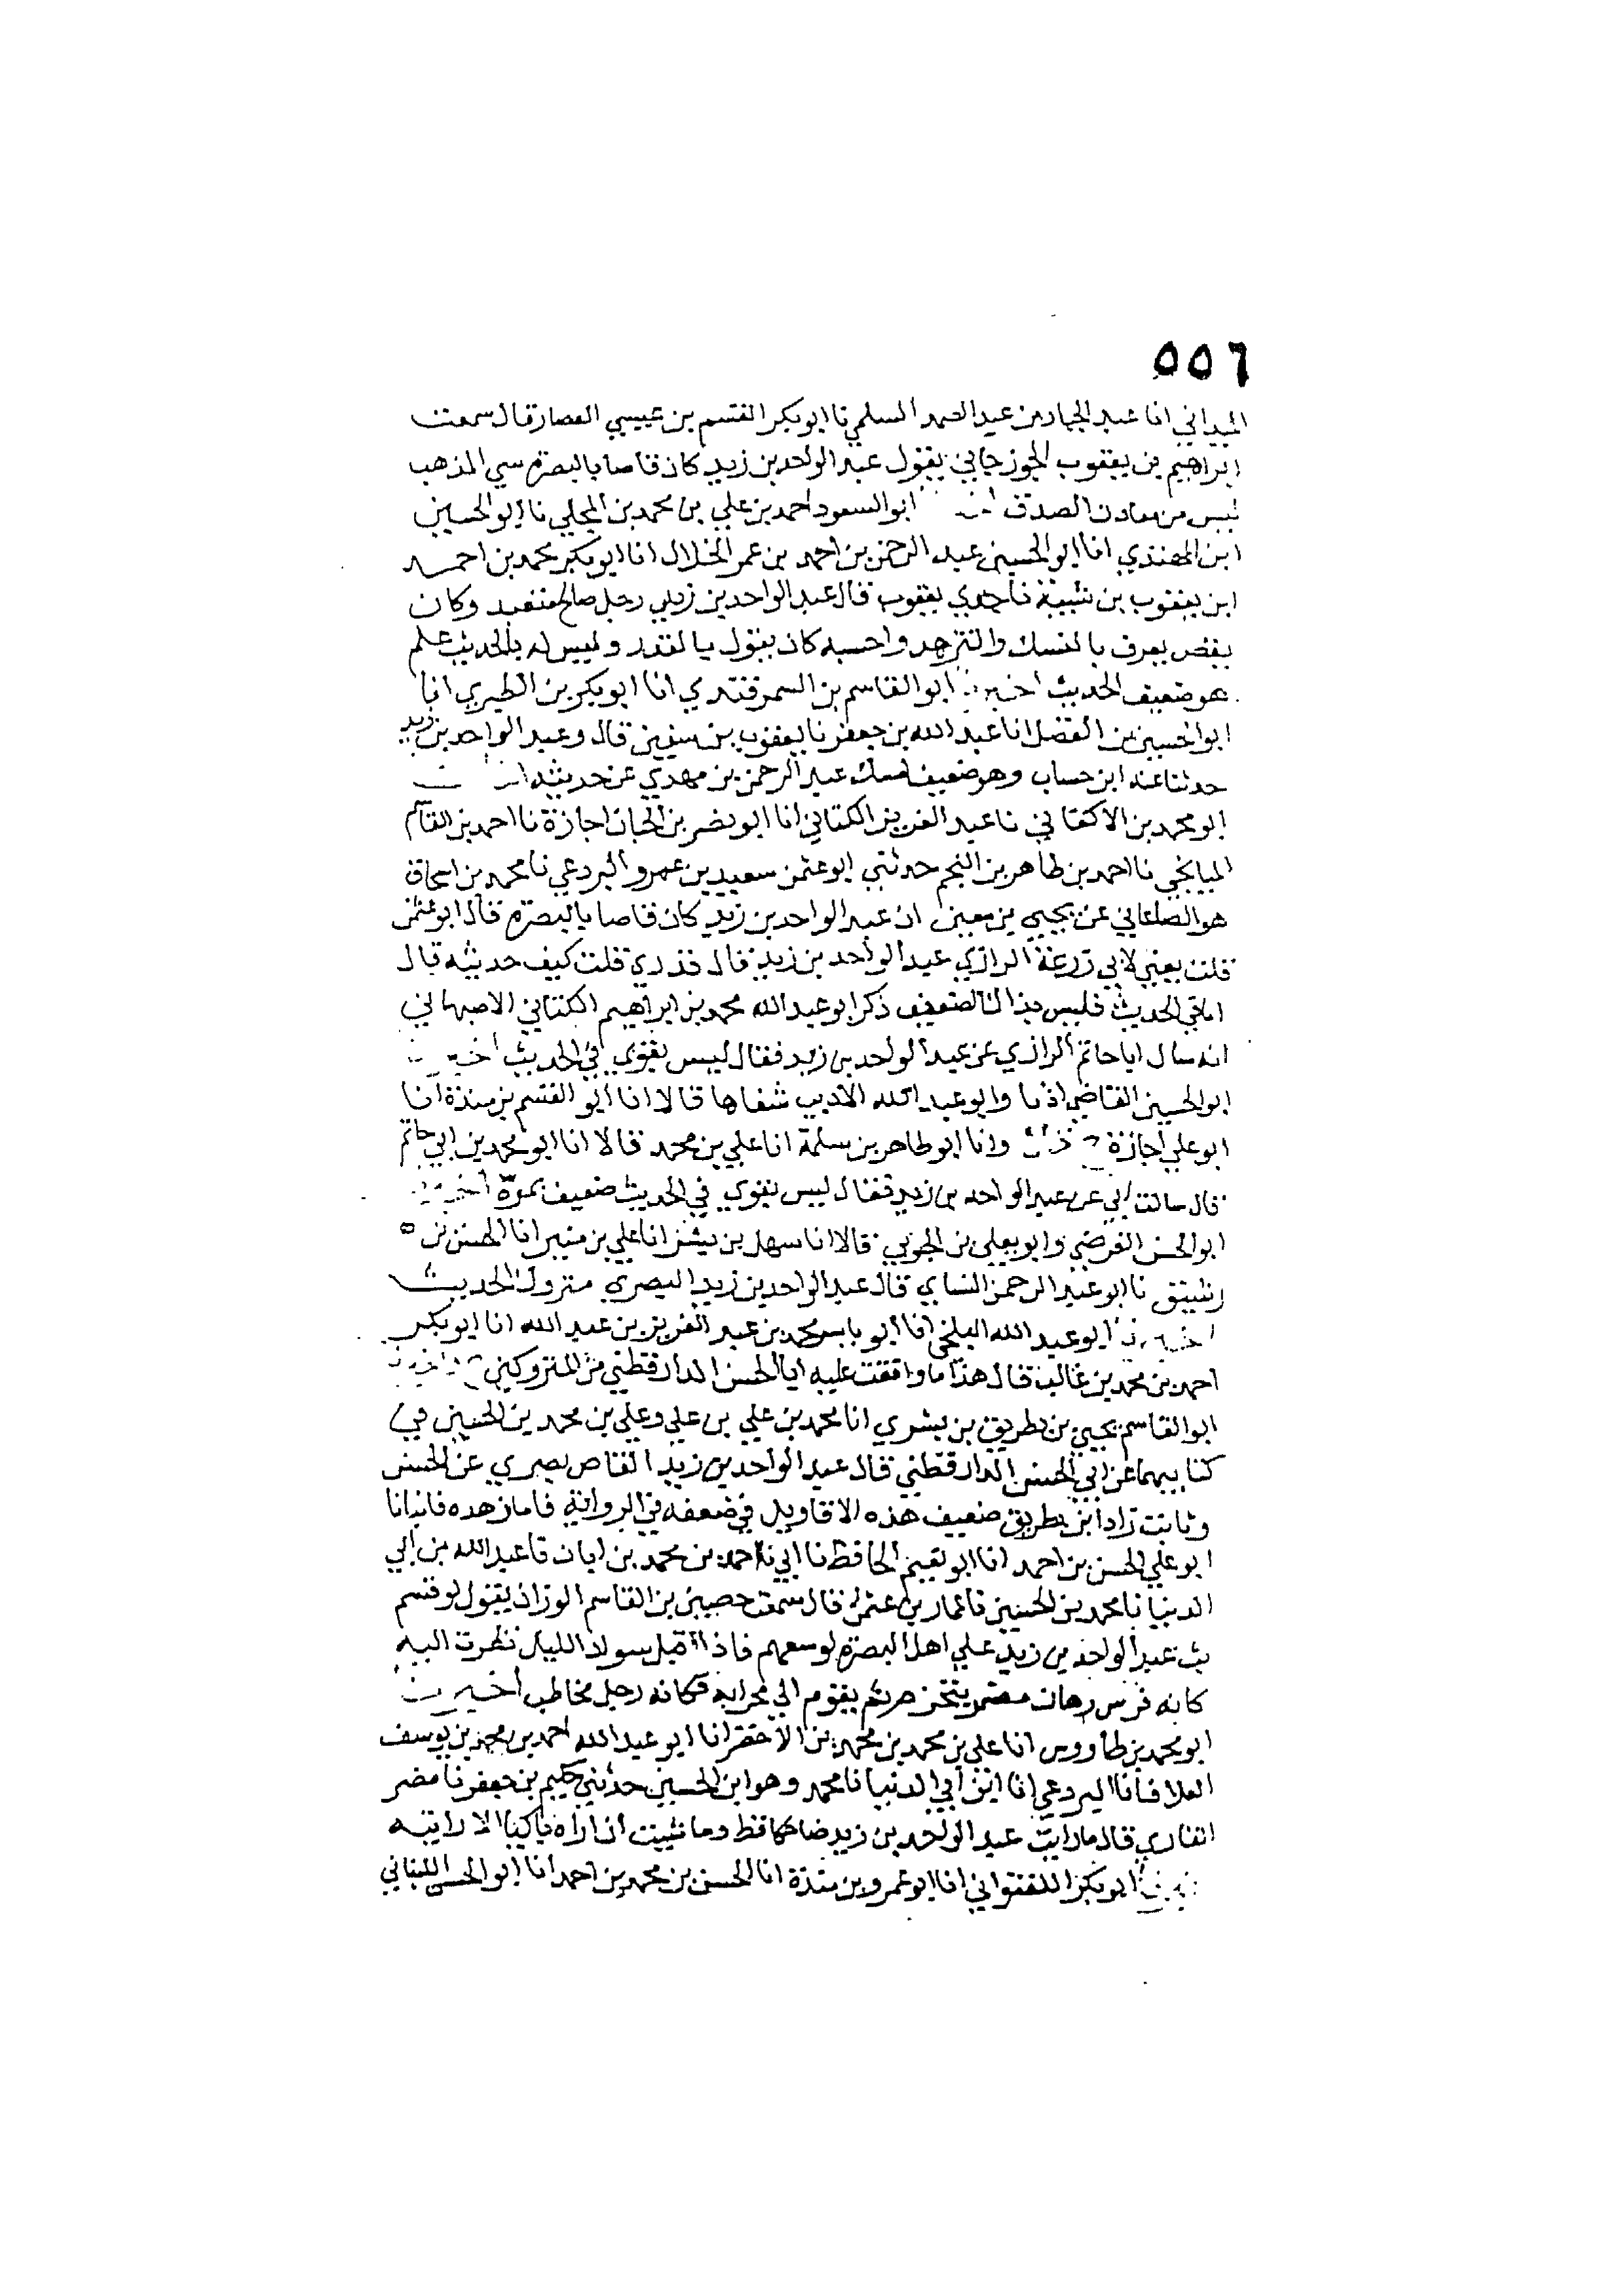 ٥٥٦
الميداني انا عبد الجبار بن عبد الصمد السلمي نا ابو بكر القسم بن عيسي العصار قال سمعت
ابراهيم بن يعقوب الجوزجاني يقول عبد الواحد بن زيد كان قاصا بالبصرة سي المذهب
ليس من معادن الصدق ابو السعود احمد بن علي بن محمد بن المجلي نا ابو الحسين
ابن المهتدي انا ابو الحسين عبد الرحمن بن احمد بن عمر الخلال انا ابو بكر محمد بن احمد
ابن يعقوب بن شيبة نا جدي يعقوب قال عبد الواحد بن زيد رجل صالح متعبد وكان
يقص يعرف بالنسك والتزهد واحسبه كان يقول بالقدر وليس له بالحديث علم
هو ضعيف الحديث اخبرنا ابو القاسم بن السمرقندي انا ابو بكر بن الطبري انا
ابو الحسين بن الفضل انا عبد الله بن جعفر نا يعقوب بن سفين قال وعبد الواحد بن زيد
حدثنا عنه ابن حساب وهو ضعيف امسك عبد الرحمن بن مهدي عن حديثه
ابو محمد بن الاكفاني نا عبد العزيز الكتاني انا ابو نصر بن الجبان اجازة نا احمد بن القاسم
الميانجي نا احمد بن طاهر بن النجم حدثني ابو عثمن سعيد بن عمرو البردعي نا محمد بن اسحاق
هو الصاغاني عن يحيي بن معين ان عبد الواحد بن زيد كان قاصا بالبصرة قال ابو عثمن
قلت يعني لابي زرعة الرازي عبد الواحد بن زيد قال قدري قلت كيف حديثه قال
اما في الحديث فليس بذاك الضعيف ذكر ابو عبد الله محمد بن ابراهيم الكتاني الاصبهاني
انه سال ابا حاتم الرازي عن عبد الواحد بن زيد فقال ليس بقوي في الحديث اخبرنا
ابو الحسين القاضي اذنا وابو عبد الله الاديب شفاها قالا انا ابو القسم بن مندة انا
ابو علي اجازة وانا ابو طاهر بن سلمة انا علي بن محمد قالا انا ابو محمد بن ابي حاتم
قال سالت ابي عن عبد الواحد بن زيد فقال ليس بقوي في الحديث ضعيف بمرة اخبرنا
ابو الحسن الفرضي وابو يعلي بن الحبوبي قالا انا سهل بن بشر انا علي بن منير انا الحسن بن
رشيق نا ابو عبد الرحمن النساي قال عبد الواحد بن زيد البصري متروك الحديث
اخبرنا ابو عبد الله البلخي انا ابو ياسر محمد بن عبد العزيز بن عبد الله انا ابو بكر
احمد بن محمد بن غالب قال هذا ما وافقت عليه ابا الحسن الدارقطني من المتروكين
ابو القاسم يحيي بن بطريق بن بشري انا محمد بن علي بن علي وعلي بن محمد بن الحسين في
كتابيهما عن ابي الحسن الدارقطني قال عبد الواحد بن زيد القاص بصري عن الحسن
وثابت زاد ابن بطريق ضعيف هذه الاقاويل في ضعفه في الرواية فاما زهده فانبانا
ابو علي الحسن بن احمد انا ابو نعيم الحافظ نا ابي نا احمد بن محمد بن ابان نا عبد الله بن ابي
الدنيا نا محمد بن الحسين نا عمار بن عثمن قال سمعت حصين بن القاسم الوزان يقول لو قسم
بث عبد الواحد بن زيد علي اهل البصرة لوسعهم فاذا اقبل سواد الليل نظرت اليه
كانه فرس رهان مضمر ثم يقوم الي محرابه فكانه رجل مخاطب اخبرنا
ابو محمد بن طاووس انا علي بن محمد بن محمد بن الاخضر انا ابو عبد الله احمد بن محمد بن يوسف
العلاف انا البردعي انا ابن ابي الدنيا نا محمد وهو ابن الحسين حدثني حكيم بن جعفر نا مضر
القاري قال ما رايت عبد الواحد بن زيد ضاحكا قط وما شيت ان اراه باكيا الا رايته
ابو بكر اللفتواني انا ابو عمرو بن مندة انا الحسن بن محمد بن احمد انا ابو الحسن اللبناني